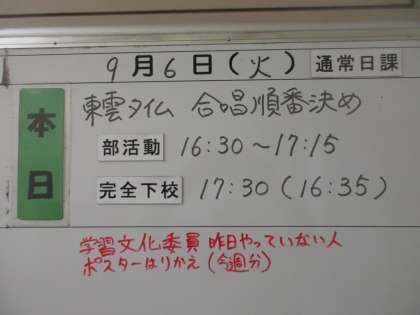 9月6日(火) 通常日課
本日
東雲タイム 合唱順番決め
部活動 16:30～17:15
完全下校 17:30(16:35)
学習文化委員 昨日やっていない人
ポスターはりかえ(今週分)